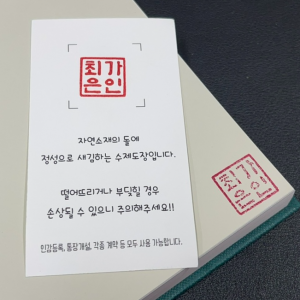 최가
은인
자연소재의 돌에
정성으로 새김하는 수제도장입니다.
떨어뜨리거나 부딪힐 경우
손상될 수 있으니 주의해주세요!!
인감등록, 통장개설, 각종 계약 등 모두 사용 가능합니다.
최가
은인